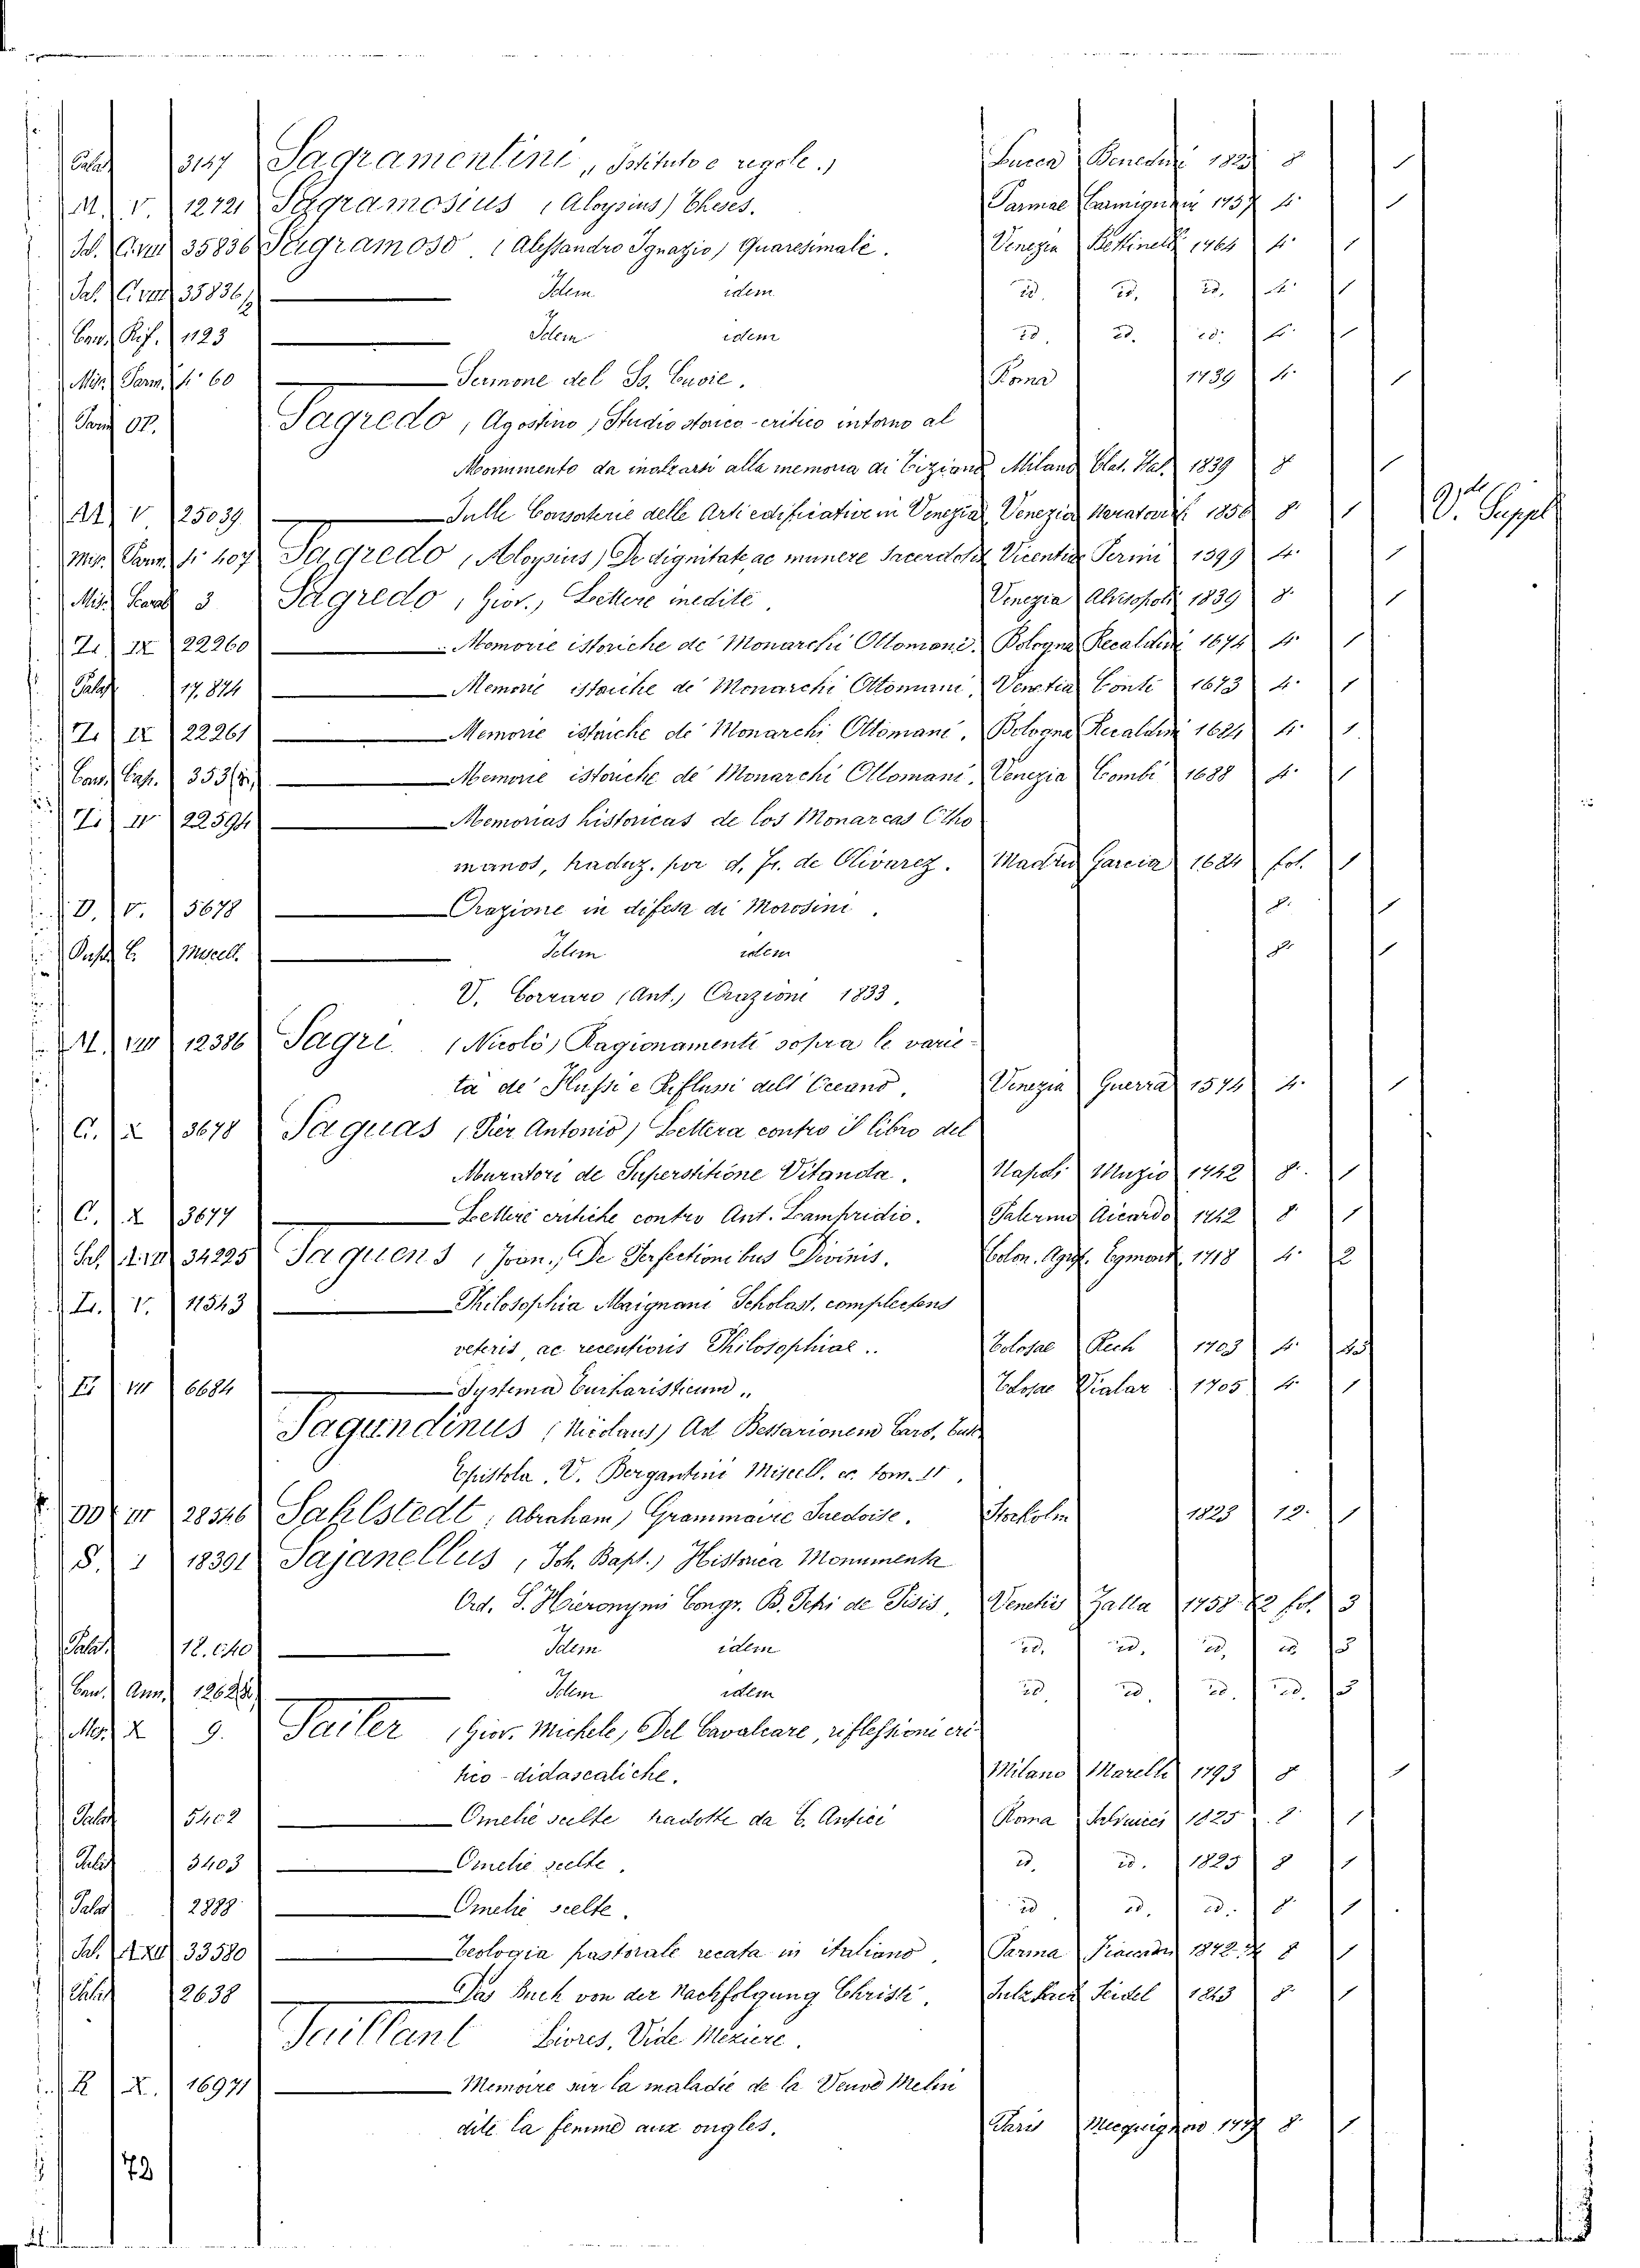 Palat. 3147 Sagramentine, Istituto e regole.) Lucca Benedini 1825 8 1
M. V. 12721 Sagramosius (Aloysius) Theses. Parmae Carmignani 1757 4. 1
35836 Sagramoso (Alessandro Ignazio) Quaresimale. Venezia Bettinelli 1764 4. 1
35836/1 Idem idem id. id. id. 4. 1
Can. Rif. 1123 Idem idem id. id. id. 4. 1
Misc. Parm. 4° 60 Sermone del SS. Cuore. Roma 1739 4. 1
Parm. OP. Sagredo, Agostino, Studio storico-critico intorno al
Monumento da inalzarsi alla memoria di Tiziano Milano Clas. Ital. 1839 8 1
V 25039 Sulle Consorterie delle Arti edificative in Venezia, Venezia Naratovich 1856 8. 1 V. Suppl
Misc. Parm. 4° 407 Sagredo, Aloysius) De dignitate, ac munere Sacerdotis Vicentiae Perini 1599 4. 1
Misc. Scarab. 3 Sagredo, Giov., Lettere inedite. Venezia Alvisopoli 1839 8. 1
IX 22260 Memorie istoriche de Monarchi Ottomani. Bologna Recaldini 1674 4. 1
Palat. 17.874 Memorie istoriche de Monarchi Ottomani, Venetia Conti 1673 4. 1
IX 22261 Memorie istoriche de Monarchi Ottomani. Bologna Recaldini 1684 4. 1
353 Memorie istoriche de Monarchi Ottomani, Venezia Combi 1688 4. 1
22594 Memorias historicas de los Monarcas Otho
manos, traduz. por d. Fr. de Olivarez. Madrid Garcia 1684 fol. 1
V. 5678 Orazione in difesa di Morosini. 8. 1
Miscell. Idem idem 8. 1
V. Corraro (Ant.) Orazioni 1833.
M. VIII 12386 Sagri. (Nicolò) Ragionamenti sopra le varie-
tà de' Flussi e Riflussi dell'Oceano, Venezia Guerra 1574 4. 1
C. X 3678 Saguas (Pier Antonio) Lettera contro il libro del
Muratori de Superstitione Vitanda. Napoli Muzio 1742 8. 1
C. X 3677 Lettere critiche contro Ant. Lampridio. Palermo Aicardo 1742 8 1
34295 Saguens (Joan., De Perfectionibus Divinis. Colon. Agrip. Egmont 1718 4. 2
V. 11543 Philosophia Maignani Scholast. complectens
veteris, ac recentioris Philosophiae.. Tolosae Pech 1703 4.
VII 6684 Systema Eucharisticum.. Tolosae Vialar 1705 4. 1
Sagundinus (Nicolaus) Ad Bessarionem Card.
Epistola. V. Bergantini Miscell. ec. tom. II.
DD III 28546 Sahlstedt, Abraham) Grammaire Suedoise. Stockolm 1823 12. 1
S. I 18391 Sajanellus, Joh. Bapt.) Historica Monumenta
Ord. S. Hieronymi Congr. B. Petri de Pisis, Venetiis Zatta 1758-62 fol. 3
Palat. Idem idem id. id. id. id 3
Ben. Ann. Idem idem id. id. id. id. 3
X 9. Sailer (Giov. Michele, Del Cavalcare, riflessioni cri-
tico-didascaliche. Milano Marelli 1793 8 1
Palat. 5402 Omelie scelte tradotte da C. Antici Roma Salviucci 1825 8 1
Palat. 3403 Omelie scelte. id. id. 1825 8 1
Palat. 2888 Omelie scelte. id id. id. 8. 1
33580 Teologia pastorale recata in italiano, Parma Fiaccadori 8 1
Palat. 2638 Das Buch von der Nachfolgung Christi, Sulzbach Seidel 1823 8. 1
Saillant Livres, Vide Meziere.
R X. 16971 Memoire sur la maladie de la Veuve Melin
dite la femme aux ongles. Paris 8. 1
72